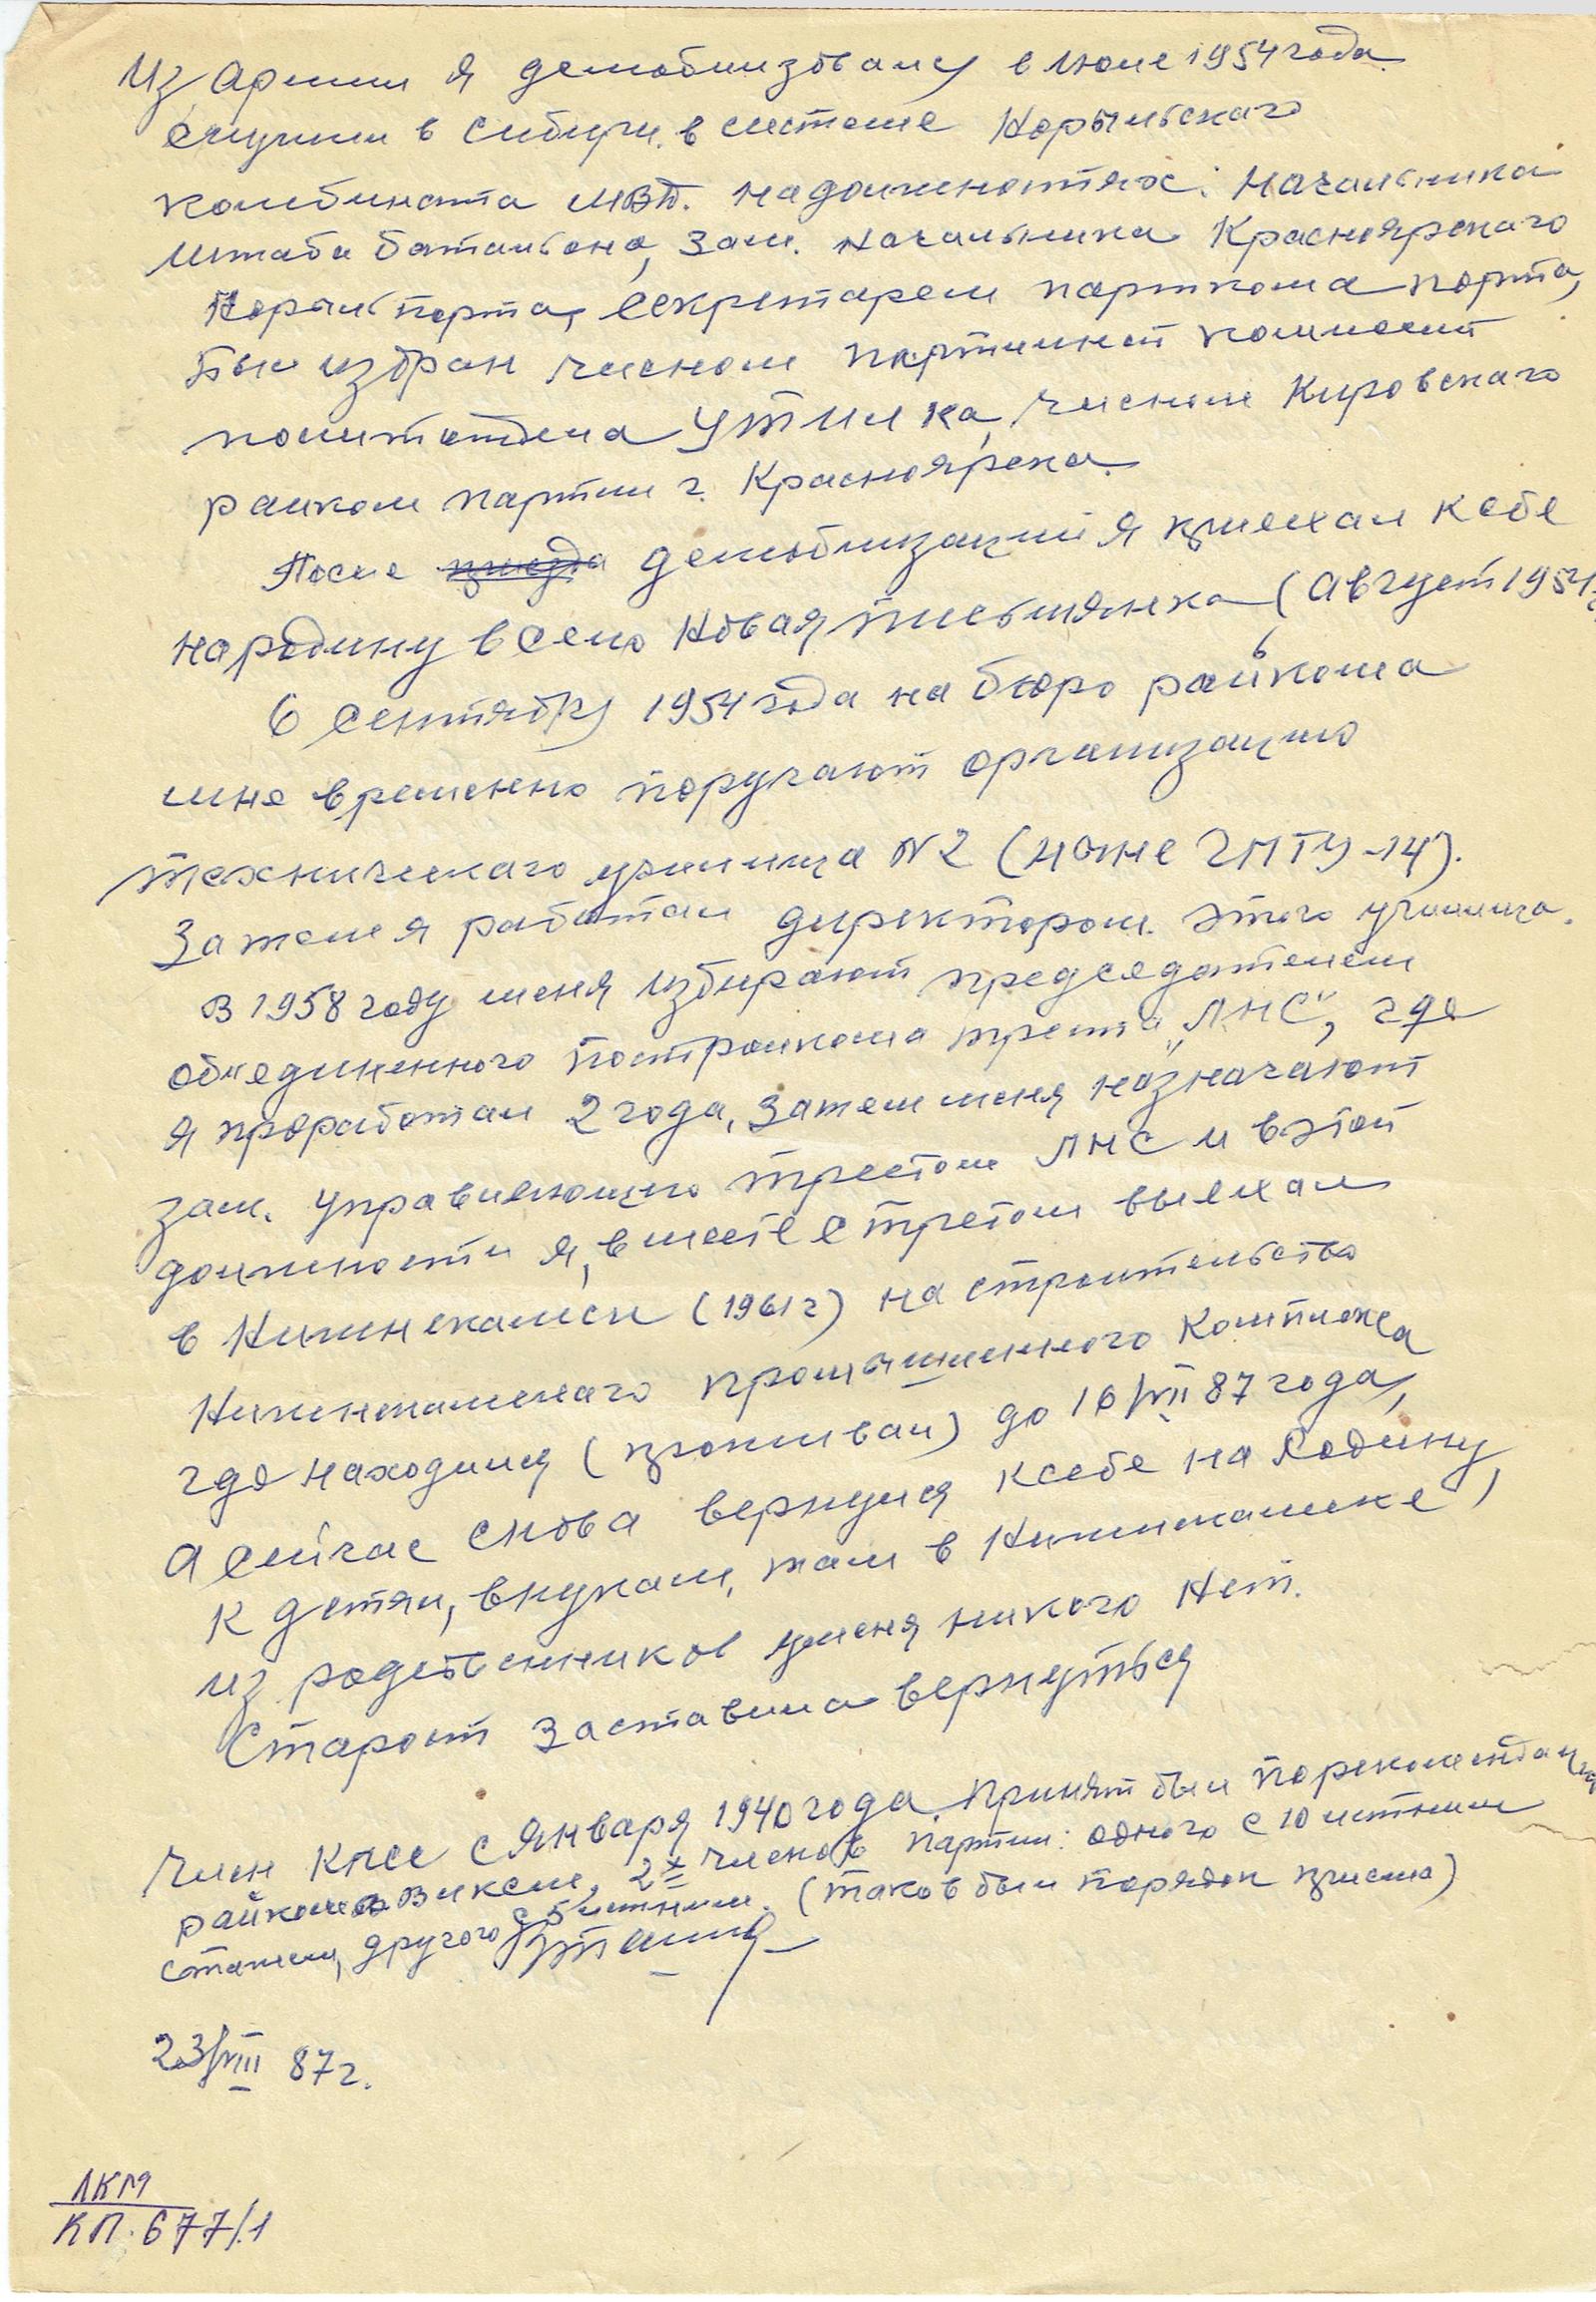 Из Армии я демобилизовану в июле 1954 года.
служил в Сибири в системе Норыльского
комбината МВД. на должностях: Начальника
штаба батальона, Зам. начальника Красноярского
Норыльпорта, Секретарем парткома порта,
был избран членом партийной комиссии
политотдела УТЛ и ка, членом Кировского
райком партии г. Красноярска.
После приезда демобилизации я приехал к себе
на родину в село Новая Письмянка (Август 1954 г
6 сентября 1954 года на бюро райкома
мне временно поручают организацию
технического училища №2 (ныне ГПТУ-14).
Затем я работал директором этого училища.
В 1958 году меня избирают председателем
объединенного постройкома треста „ЛНС", где
я проработал 2 года, Затем меня назначают
зам. управляющего трестом ЛНС и в этой
должности я, вместе с трестом выехал
в Нижнекамск (1961 г) на строительство
Нижнекамского промышленного Комплекса
где находился (проживал) до 16/VII 87 года,
А сейчас снова вернулся к себе на Родину
к детям, внукам, там в Нижнекамске,
из родственников у меня никого нет.
Старост заставила вернуться
Член КПСС с Января 1940 года. Принят был по рекомендации
райкома ВЛКСМ, 2х членов партии: одного с 10 летним
стажем, другого с 5 летним. (таков был порядок приема)
23/VIII 87 г.
ЛКМ
КП. 677/1